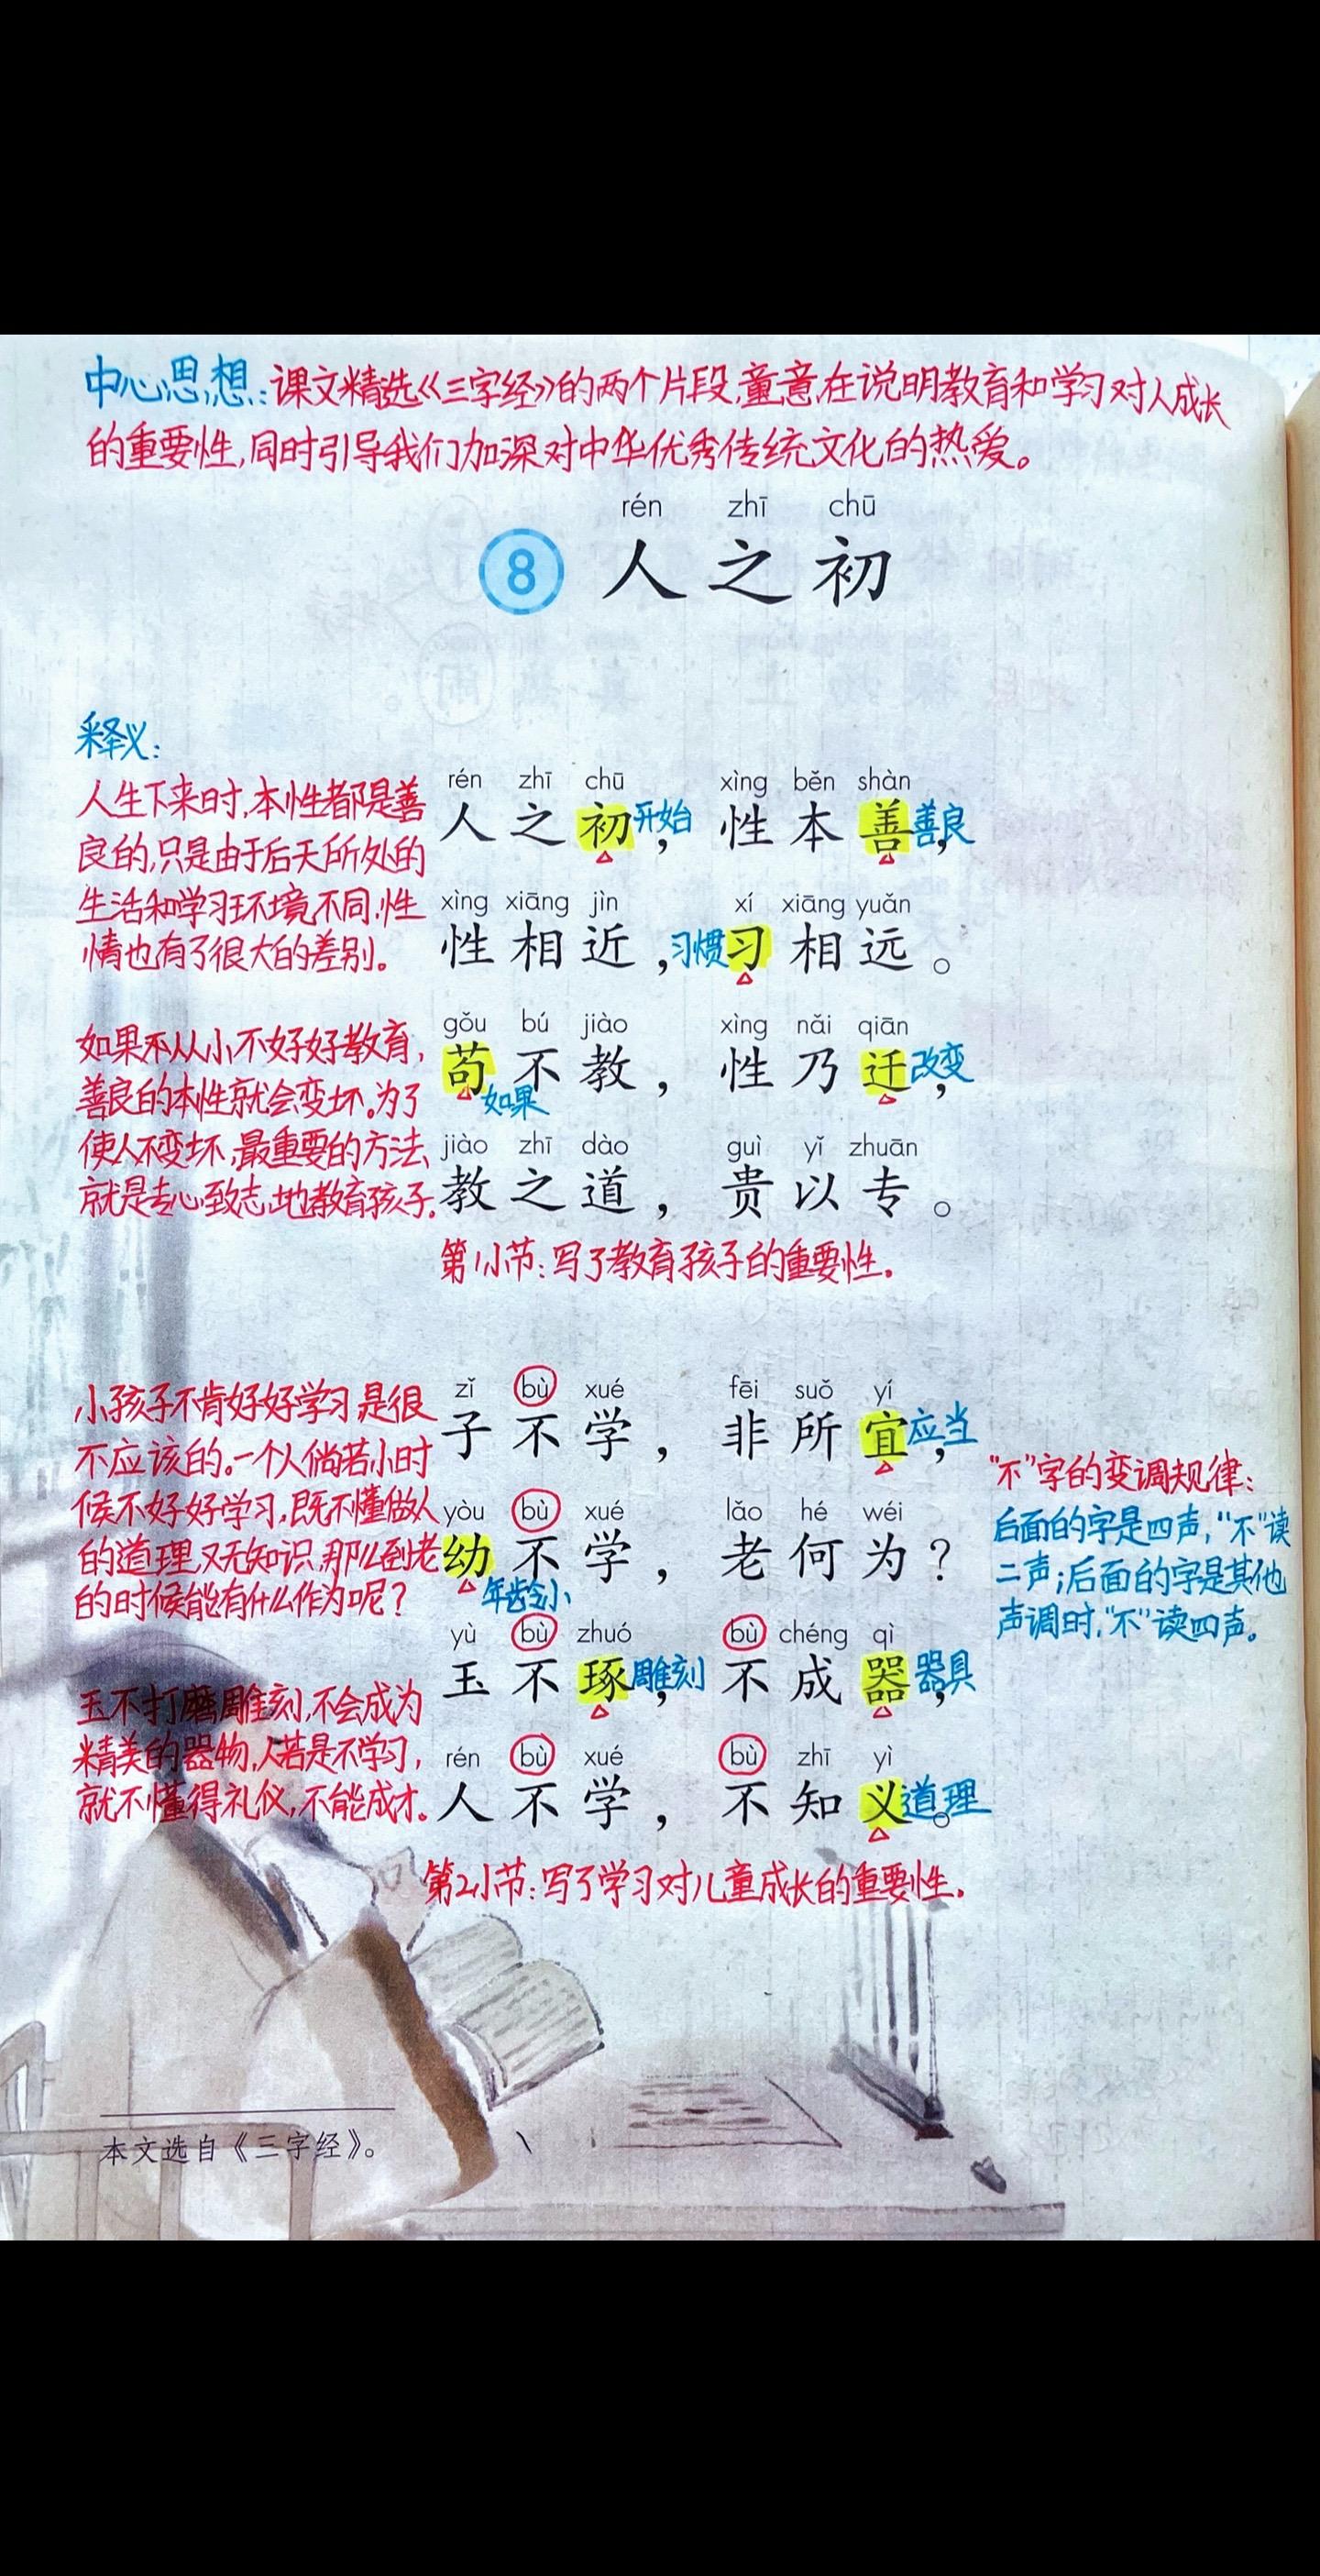 中心思想:课文精选《三字经》的两个片段,童意在说明教育和学习对人成长
的重要性,同时引导我们加深对中华优秀传统文化的热爱。
rén zhī chū
8 人之初
释义:
人生下来时,本性都是善
良的,只是由于后天所处的
生活和学习环境不同,性
情也有了很大的差别。
rén zhī chū xìng běn shàn
人之初开始,性本善善良,
xìng xiāng jìn xí xiāng yuǎn
性相近,习惯习相远。
如果不从小不好好教育,
善良的本性就会变坏。为了
使人不变坏,最重要的方法,
就是专心致志地教育孩子。
gǒu bú jiào xìng nǎi qiān
苟不教,性乃迁改变,
如果
jiào zhī dào guì yǐ zhuān
教之道,贵以专。
第1小节:写了教育孩子的重要性。
小孩子不肯好好学习,是很
不应该的。一个人倘若小时
候不好好学习,既不懂做人
的道理,又无知识,那么到老
的时候能有什么作为呢?
zǐ bù xué fēi suǒ yí
子不学,非所宜应当,
yòu bù xué lǎo hé wéi
幼不学,老何为?
年龄小
"不"字的变调规律:
后面的字是四声,"不"读
二声;后面的字是其他
声调时,"不"读四声。
玉不打磨雕刻,不会成为
精美的器物,人若是不学习,
就不懂得礼仪,不能成才。
yù bù zhuó bù chéng qì
玉不琢雕刻,不成器器具,
rén bù xué bù zhī yì
人不学,不知义道理。
第2小节:写了学习对儿童成长的重要性。
本文选自《三字经》。